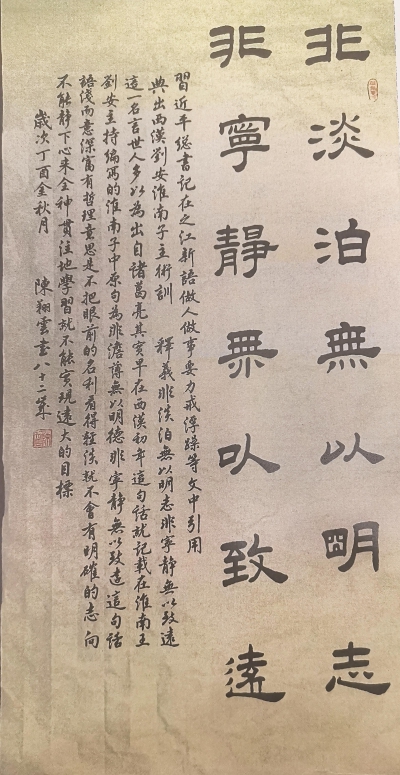 非淡泊無以明志
非寧靜無以致遠
習近平總書記在之江新語做人做事要力戒浮躁等文中引用
典出西漢劉安淮南子主術訓 釋義非淡泊無以明志非寧静無以致遠
這一名言世人多以為出自諸葛亮其實早在西漢初年這句話就記載在淮南王
劉安主持編寫的淮南子中原句為非澹薄無以明德非寧静無以致遠這句話
語淺而意深富有哲理意思是不把眼前的名利看得輕淡就不會有明確的志向
不能静下心来全神貫注地學習就不能實現遠大的目標
歲次丁酉金秋月 陳翔雲書八十二筆